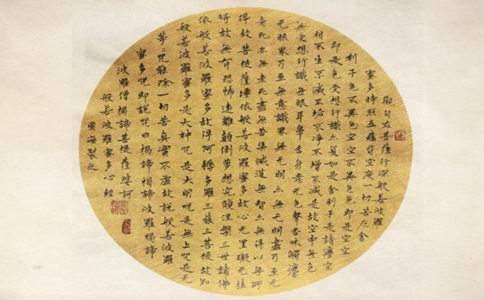 觀自在菩薩行深般若波羅
蜜多時照五蘊皆空度一切苦厄舍
利子色不異空空不異色色即是空空
即是色受想行識亦復如是舍利子是諸法空
相不生不滅不垢不淨不增不減是故空中無色
無受想行識無眼耳鼻舌身意無色聲香味觸法
無眼界乃至無意識界無無明亦無無明盡乃至無
老死亦無老死盡無苦集滅道無智亦無得以無所
得故菩提薩埵依般若波羅蜜多故心無罣礙無罣
礙故無有恐怖遠離顛倒夢想究竟涅槃三世諸佛
依般若波羅蜜多故得阿耨多羅三藐三菩提故知
般若波羅蜜多是大神咒是大明咒是無上咒是無
等等咒能除一切苦真實不虛故說般若波羅
蜜多咒即說咒曰揭諦揭諦波羅揭諦
波羅僧揭諦菩提薩婆訶
般若波羅蜜多心經